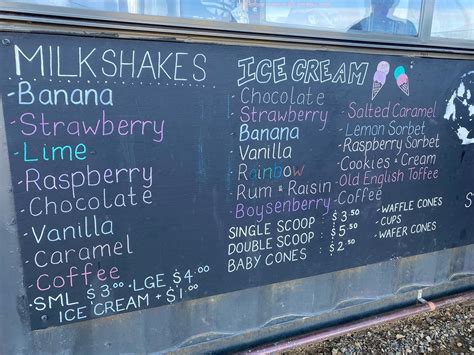 MILKSHAKES
-Banana
-Strawberry
-Lime
-Raspberry
-Chocolate
-Vanilla
-Caramel
-Coffee
-SML $3.00 -LGE $4.00
ICE CREAM +$1.00
ICE CREAM
-Chocolate
-Strawberry
-Banana
-Vanilla
-Rainbow
-Rum & Raisin
-Boysenberry
-Salted Caramel
-Lemon Sorbet
-Raspberry Sorbet
-Cookies & Cream
-Old English Toffee
-Coffee
SINGLE SCOOP : $3.50
DOUBLE SCOOP : $5.50
BABY CONES : $2.50
- WAFFLE CONES
- CUPS
- WAFER CONES